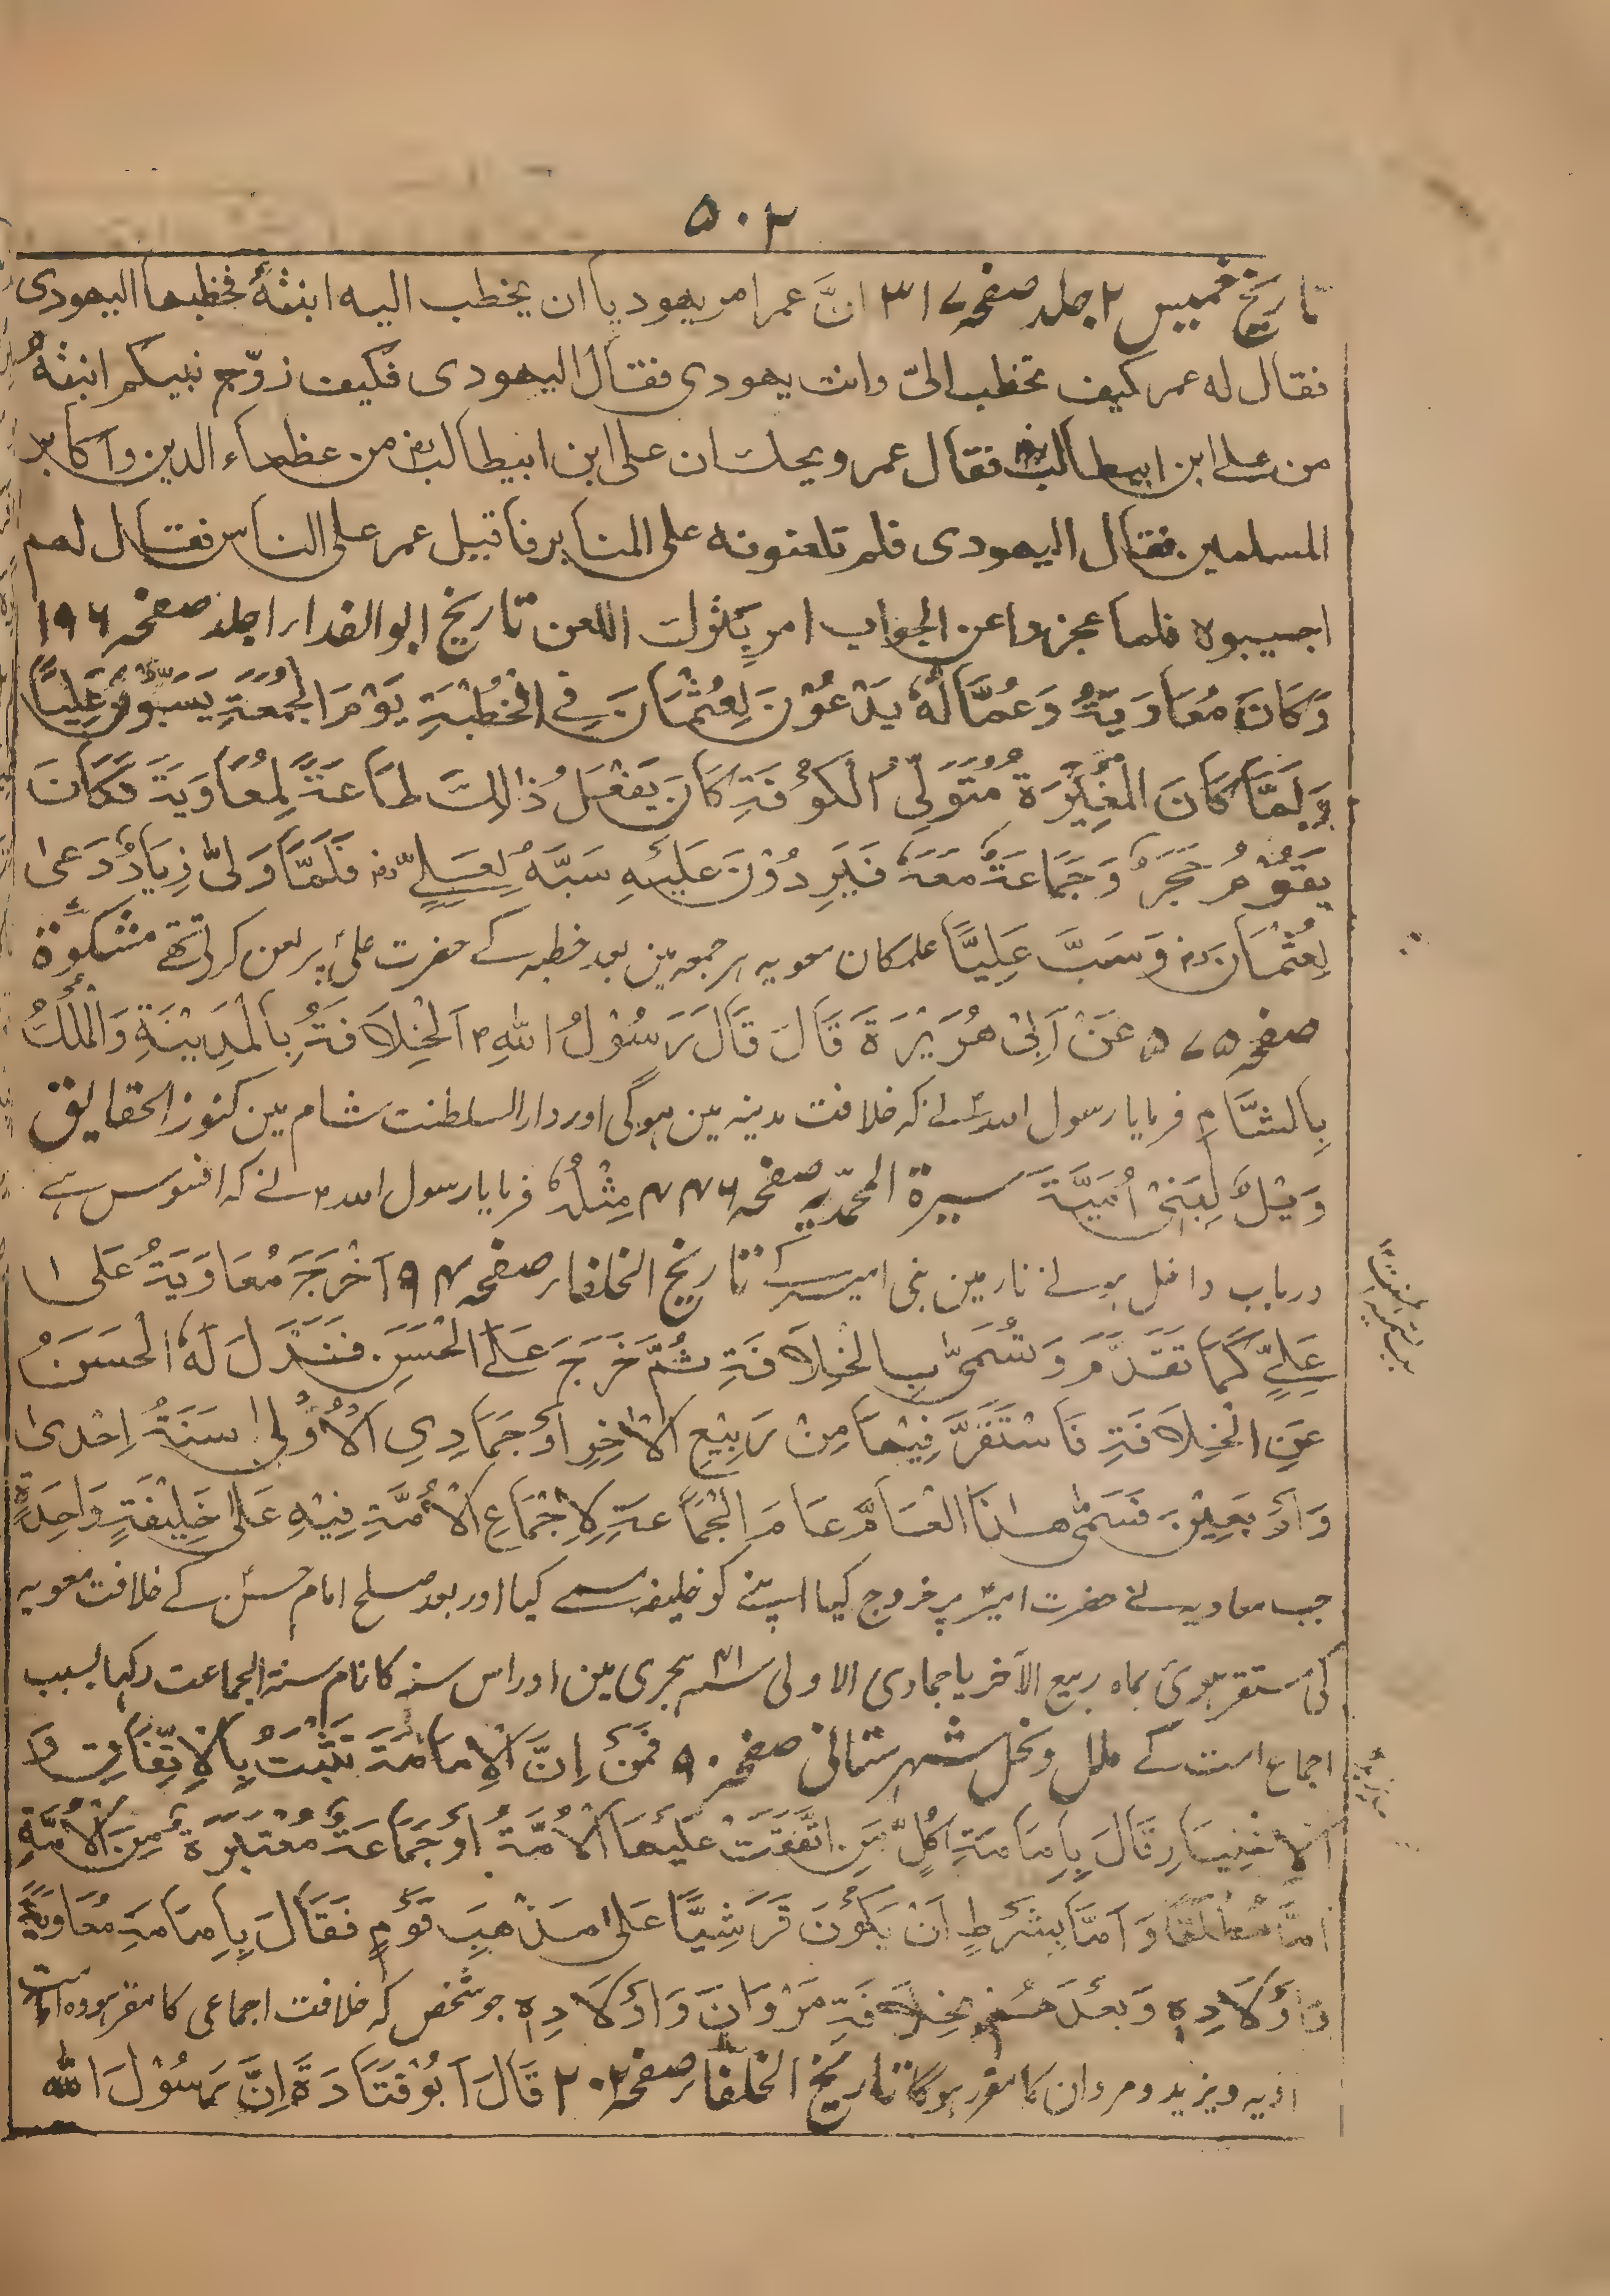 ۵۰۲
تاریخ خمیس ۲ جلد صفحہ ۳۱۷ انَّ عمر امر یهودیا ان یخطب الیه ابنتهٗ فخطبها الیهودی
فقال له عمر کیف تخطب الیّ وانت یهودی فقال الیهودی فکیف زوّج نبیکم ابنتهٗ
من علی ابن ابیطالبؓ فقال عمر ویحك ان علی ابن ابیطالبؓ من عظماء الدین واکابر
المسلمین فقال الیهودی فلم تلعنونه علی المنابر فاقبیل عمر علی الناس فقال لهم
اجیبوه فلما عجزوا عن الجواب امر بِتَرْك اللعن تاریخ ابو الفدار ا جلد صفحہ ۱۹۶
وَکَانَ مُعَاوِیَةُ وَعُمَّالُهٗ یَدْعُوْنَ لِعُثْمَانَ فِی الْخُطْبَةِ یَوْمَ الجُمْعَةِ یَسَبُّوْنَ عَلِیًّا
وَلَمَّا کَانَ الْمُغِیْرَةُ مُتَوَلِّیْ الْکُوْفَةِ کَانَ یَفْعَلُ ذٰالِكَ طَاعَةً لِمُعَاوِیَةَ فَکَانَ
یَقُوْمُ حُجْرٌ وَجَمَاعَةٌ مَعَهٗ فَیَرِدُوْنَ عَلَیْهِ سَبَّهٗ لِعَلِیٍّ رض فَلَمَّا وَلیّٰ زِیَادٌ دَعیٰ
لِعُثْمَانَ رض وَسَبَّ عَلِیًّا علمکان معویہ ہر جمعہ مین بعد خطبہ کے حضرت علیؑ پر لعن کرتی تھے مشکوٰة
صفحہ ۵۷۵ عَنْ اَبِیْ هُرَیْرَةَ قَالَ قَالَ رَسُوْلُ اللهِ ۴ اَلْخِلَافَةُ بِالْمَدِیْنَةِ وَالْمُلْكُ
بِالشَّامِ فرمایا رسول اللہ ؐ نے کہ خلافت مدینہ مین ہوگی اور دار السلطنت شام مین کنوز الحقایق
وَیْلٌ لِبَنِیْ اُمَیَّةَ سیرة المحمدیہ صفحہ ۴۴۶ مِثْلُهٗ فرمایا رسول اللہ ۴ نے کہ افسوس ہے
درباب داخل ہونے نار مین بنی امیہ کے تاریخ الخلفار صفحہ ۱۹۴ خَرَجَ مُعَاوِیَةُ عَلی ا
عَلِیٍّ کَمَا تَقَدَّمَ وَتُسَمّٰی بِالْخِلَافَةِ ثُمَّ خَرَجَ عَلَی الْحَسَنِ فَنَزَلَ لَهٗ الْحَسَنُ
عَنِ الْخِلَافَةِ فَاسْتَقَرَّ فِیْهَا مِنْ رَبِیْعِ الْاٰخِرِ اَوْ جَمَادِیِ الْاُوْلٰی سَنَةُ اِحْدیٰ
وَاَرْبَعِیْنَ فَسَمّٰی هٰذَا الْعَامَّ عَامَ الْجَمَاعَةِ لِاِجْتِمَاعِ الْاُمَّةِ فِیْهِ عَلٰی خَلِیْفَةٍ وَاحِدَةٍ
جب معاویہ نے حضرت امیرؑ پر خروج کیا اپنے کو خلیفہ سمے کیا اور بعد صلح امام حسنؑ کے خلافت معویہ
کی مستقر ہوئ بماہ ربیع الآخر یا جمادی الاولی سنہ ۴۱ ہجری مین اور اس سنہ کا نام سنة الجماعت رکہا بسبب
اجماع امت کے ملل ونحل شہرستانی صفحہ ۹۰ فَمَنْ اِنَّ الْاِمَامَةَ تَثْبُتُ بِالْاِتِّفَاقِ وَ
الْاِخْتِیَارِ قَالَ بِاِمَامَةِ کُلِّ مَنِ اتَّفَقَتْ عَلَیْهَا الْاُمَّةُ اَوْ جَمَاعَةٌ مُعْتَبَرَةٌ مِنَ الْاُمَّةِ
اِمَّا مُطْلَقًا وَاَمَّا بِشَرْطٍ اَنْ یَکُوْنَ قَرَشِیًّا عَلٰی مَذْهَبِ قَوْمٍ فَقَالَ بِاِمَامَةِ مُعَاوِیَةَ
وَاَوْلَادِهٖ وَبَعْدَهُمْ بِخِلَافَةِ مَرْوَانَ وَاَوْلَادِهٖ جو شخص کہ خلافت اجماعی کا مقر ہو وہ
ویزید ومروان کا مقر ہوگا تاریخ الخلفار صفحہ ۲۰۲ قَالَ اَبُوْ قَتَادَةَ اِنَّ رَسُوْلَ الله